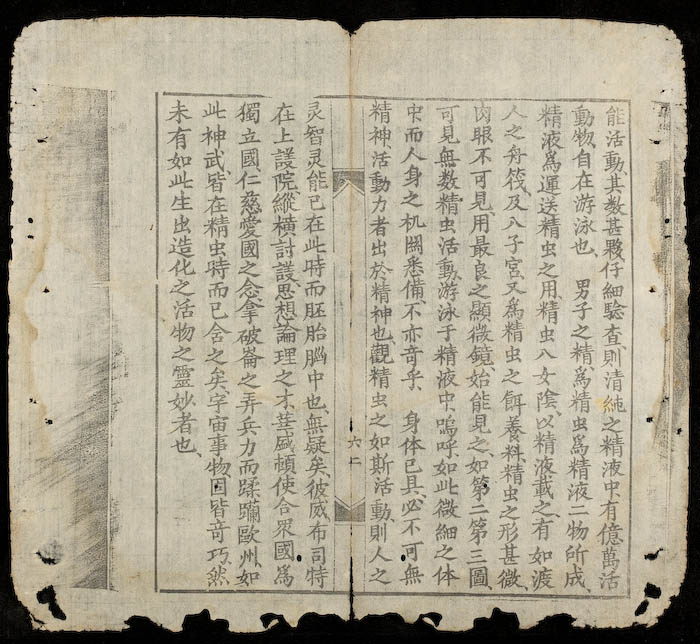 能活動、其数甚夥、仔細驗查、則清純之精液中、有億萬活
動物、自在游泳也、　男子之精、為精虫為精液二物所成、
精液為運送精虫之用、精虫入女陰、以精液載之、有如渡
人之舟筏、及入子宮、又為精虫之餌養料、精虫之形甚微、
肉眼不可見、用最良之顯微鏡、始能見之、如第二第三圖、
可見無数精虫活動、游泳于精液中、嗚呼、如此微細之体
中、而人身之机関悉備、不亦奇乎、　身体已具、必不可無
精神、活動力者出於精神也、觀精虫之如斯活動、則人之
六二
灵智灵能、已在此時而胚胎腦中也、無疑矣、彼威布司特
在上議院、縱橫討議、思想論理之才、華盛頓使合眾國為
獨立國、仁慈愛國之念、拿破崙之弄兵力而蹂躪歐州、如
此神武、皆在精虫時而已含之矣、宇宙事物、固皆奇巧、然
未有如此生出造化之活物之靈妙者也、